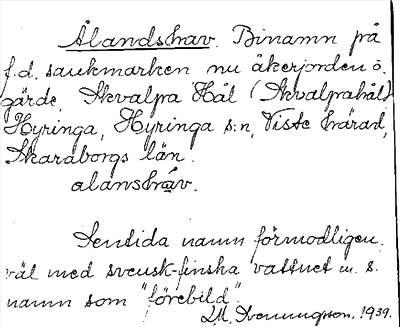 Ålandshav. Binamn på
f.d. saukmarken nu åkerjorden ö.
gärde, Skvalpa Hål (Skvalpahål)
Hyringa, Hyringa s:n, Viste härad,
Skaraborgs län.
alanshav.
Sentida namn förmodligen.
väl med svensk-finska vattnet m. s.
namn som "förebild".
1939.